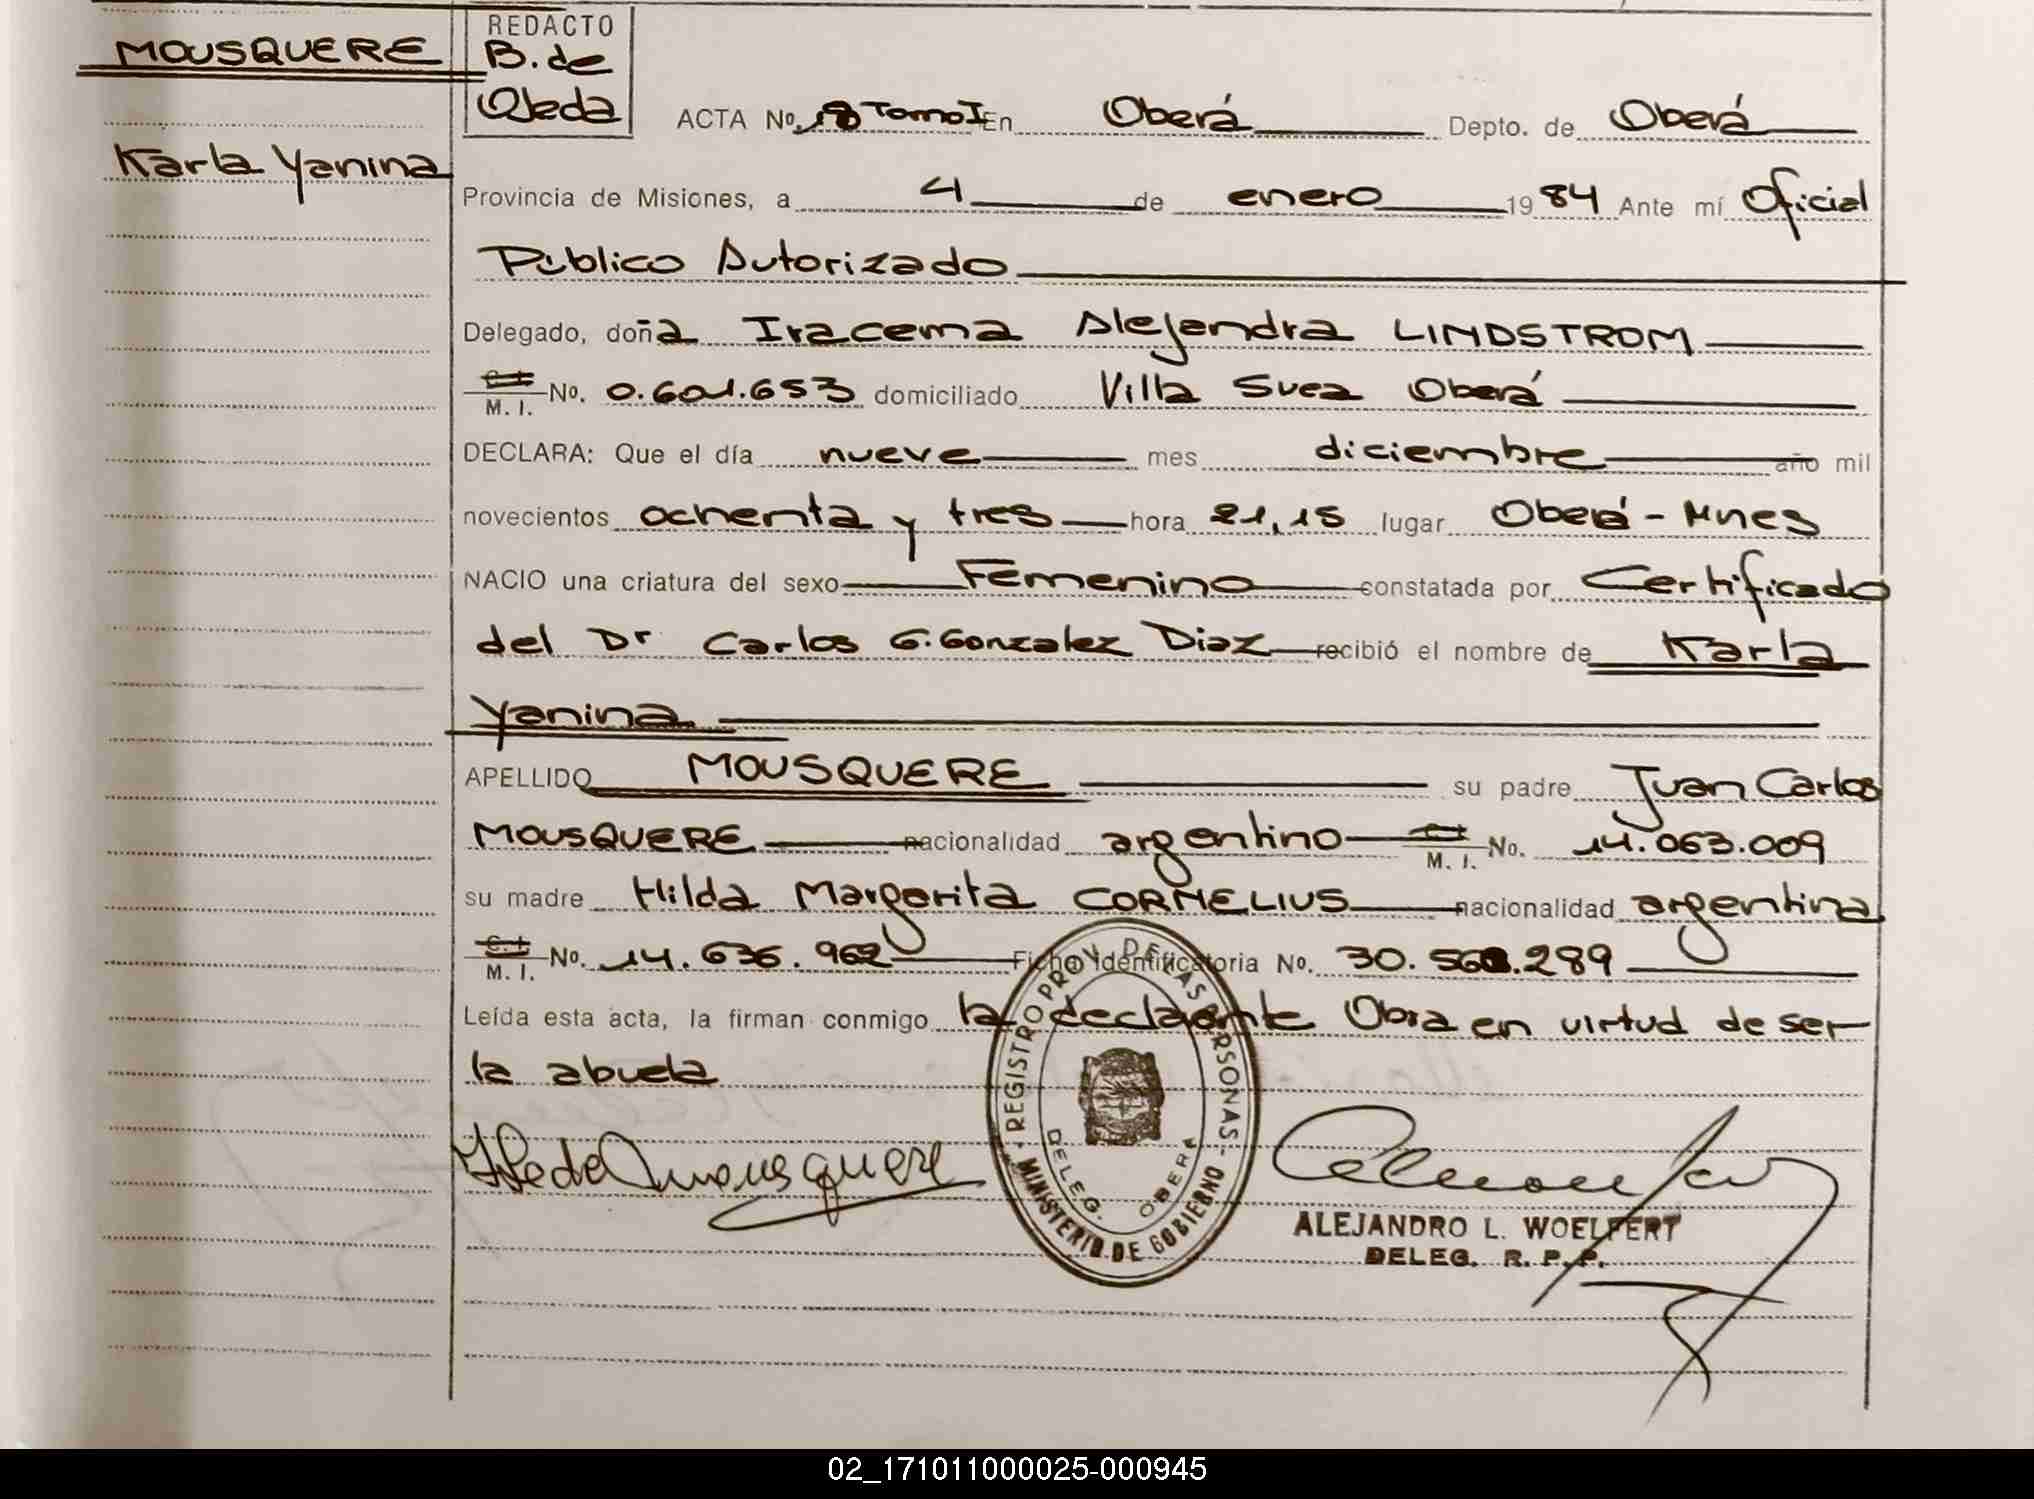 MOUSQUERE
Karla Yanina
REDACTO
B. de
Ojeda
ACTA No. 18 Tomo I En Oberá Depto. de Oberá
Provincia de Misiones, a 4 de enero 1984 Ante mí Oficial
Público Autorizado
Delegado, doña Iracema Alejandra LINDSTROM
C. I.
M. I. No. 0.601.653 domiciliado Villa Svea Oberá
DECLARA: Que el día nueve mes diciembre año mil
novecientos ochenta y tres hora 21,15 lugar Oberá - Mnes
NACIO una criatura del sexo Femenino constatada por Certificado
del Dr Carlos G. Gonzalez Diaz recibió el nombre de Karla
Yanina
APELLIDO MOUSQUERE su padre Juan Carlos
MOUSQUERE nacionalidad argentino C. I.
M. I. No. 14.063.009
su madre Hilda Margarita CORNELIUS nacionalidad argentina
C. I.
M. I. No. 14.636.962 Ficha Identificatoria No. 30.289
Leída esta acta, la firman conmigo la declarante Obra en virtud de ser
la abuela
REGISTRO PROV. DE LAS PERSONAS
DELEG. OBERA
MINISTERIO DE GOBIERNO
ALEJANDRO L. WOELFERT
DELEG. R. P. P.
02_171011000025-000945